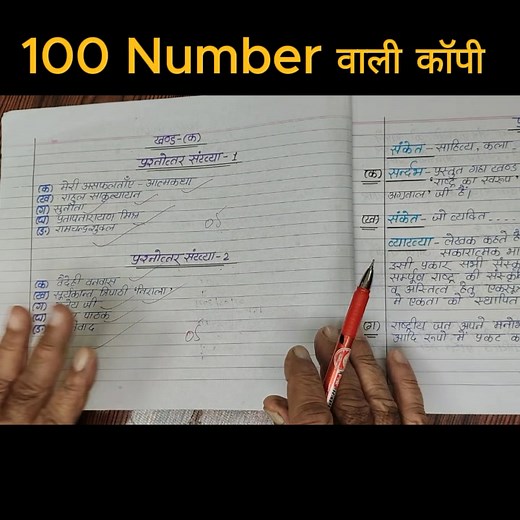 100 Number वाली कॉपी
खण्ड-(क)
प्रश्नोत्तर संख्या-1
(क) मेरी असफलताएँ - आत्मकथा
(ख) राहुल सांकृत्यायन
(ग) सुनीता
(घ) प्रतापनारायण मिश्र
(ङ) रामचन्द्र शुक्ल
05
प्रश्नोत्तर संख्या-2
(क) वैदेही वनवास
(ख) सूर्यकान्त त्रिपाठी 'निराला'
(ग)
पाठक
05
संकेत - साहित्य, कला
(क) सन्दर्भ - प्रस्तुत गद्य खण्ड
'राष्ट्र का स्वरूप'
अग्रवाल' जी हैं।
(ख) संकेत - जो व्यक्ति ....
व्याख्या - लेखक कहते हैं
सकारात्मक
इसी प्रकार सभी
सम्पूर्ण राष्ट्र की
व अस्तित्व हेतु
में एकता को स्थापित
(ग) राष्ट्रीय जन अपने
आदि रूपों में प्रकट